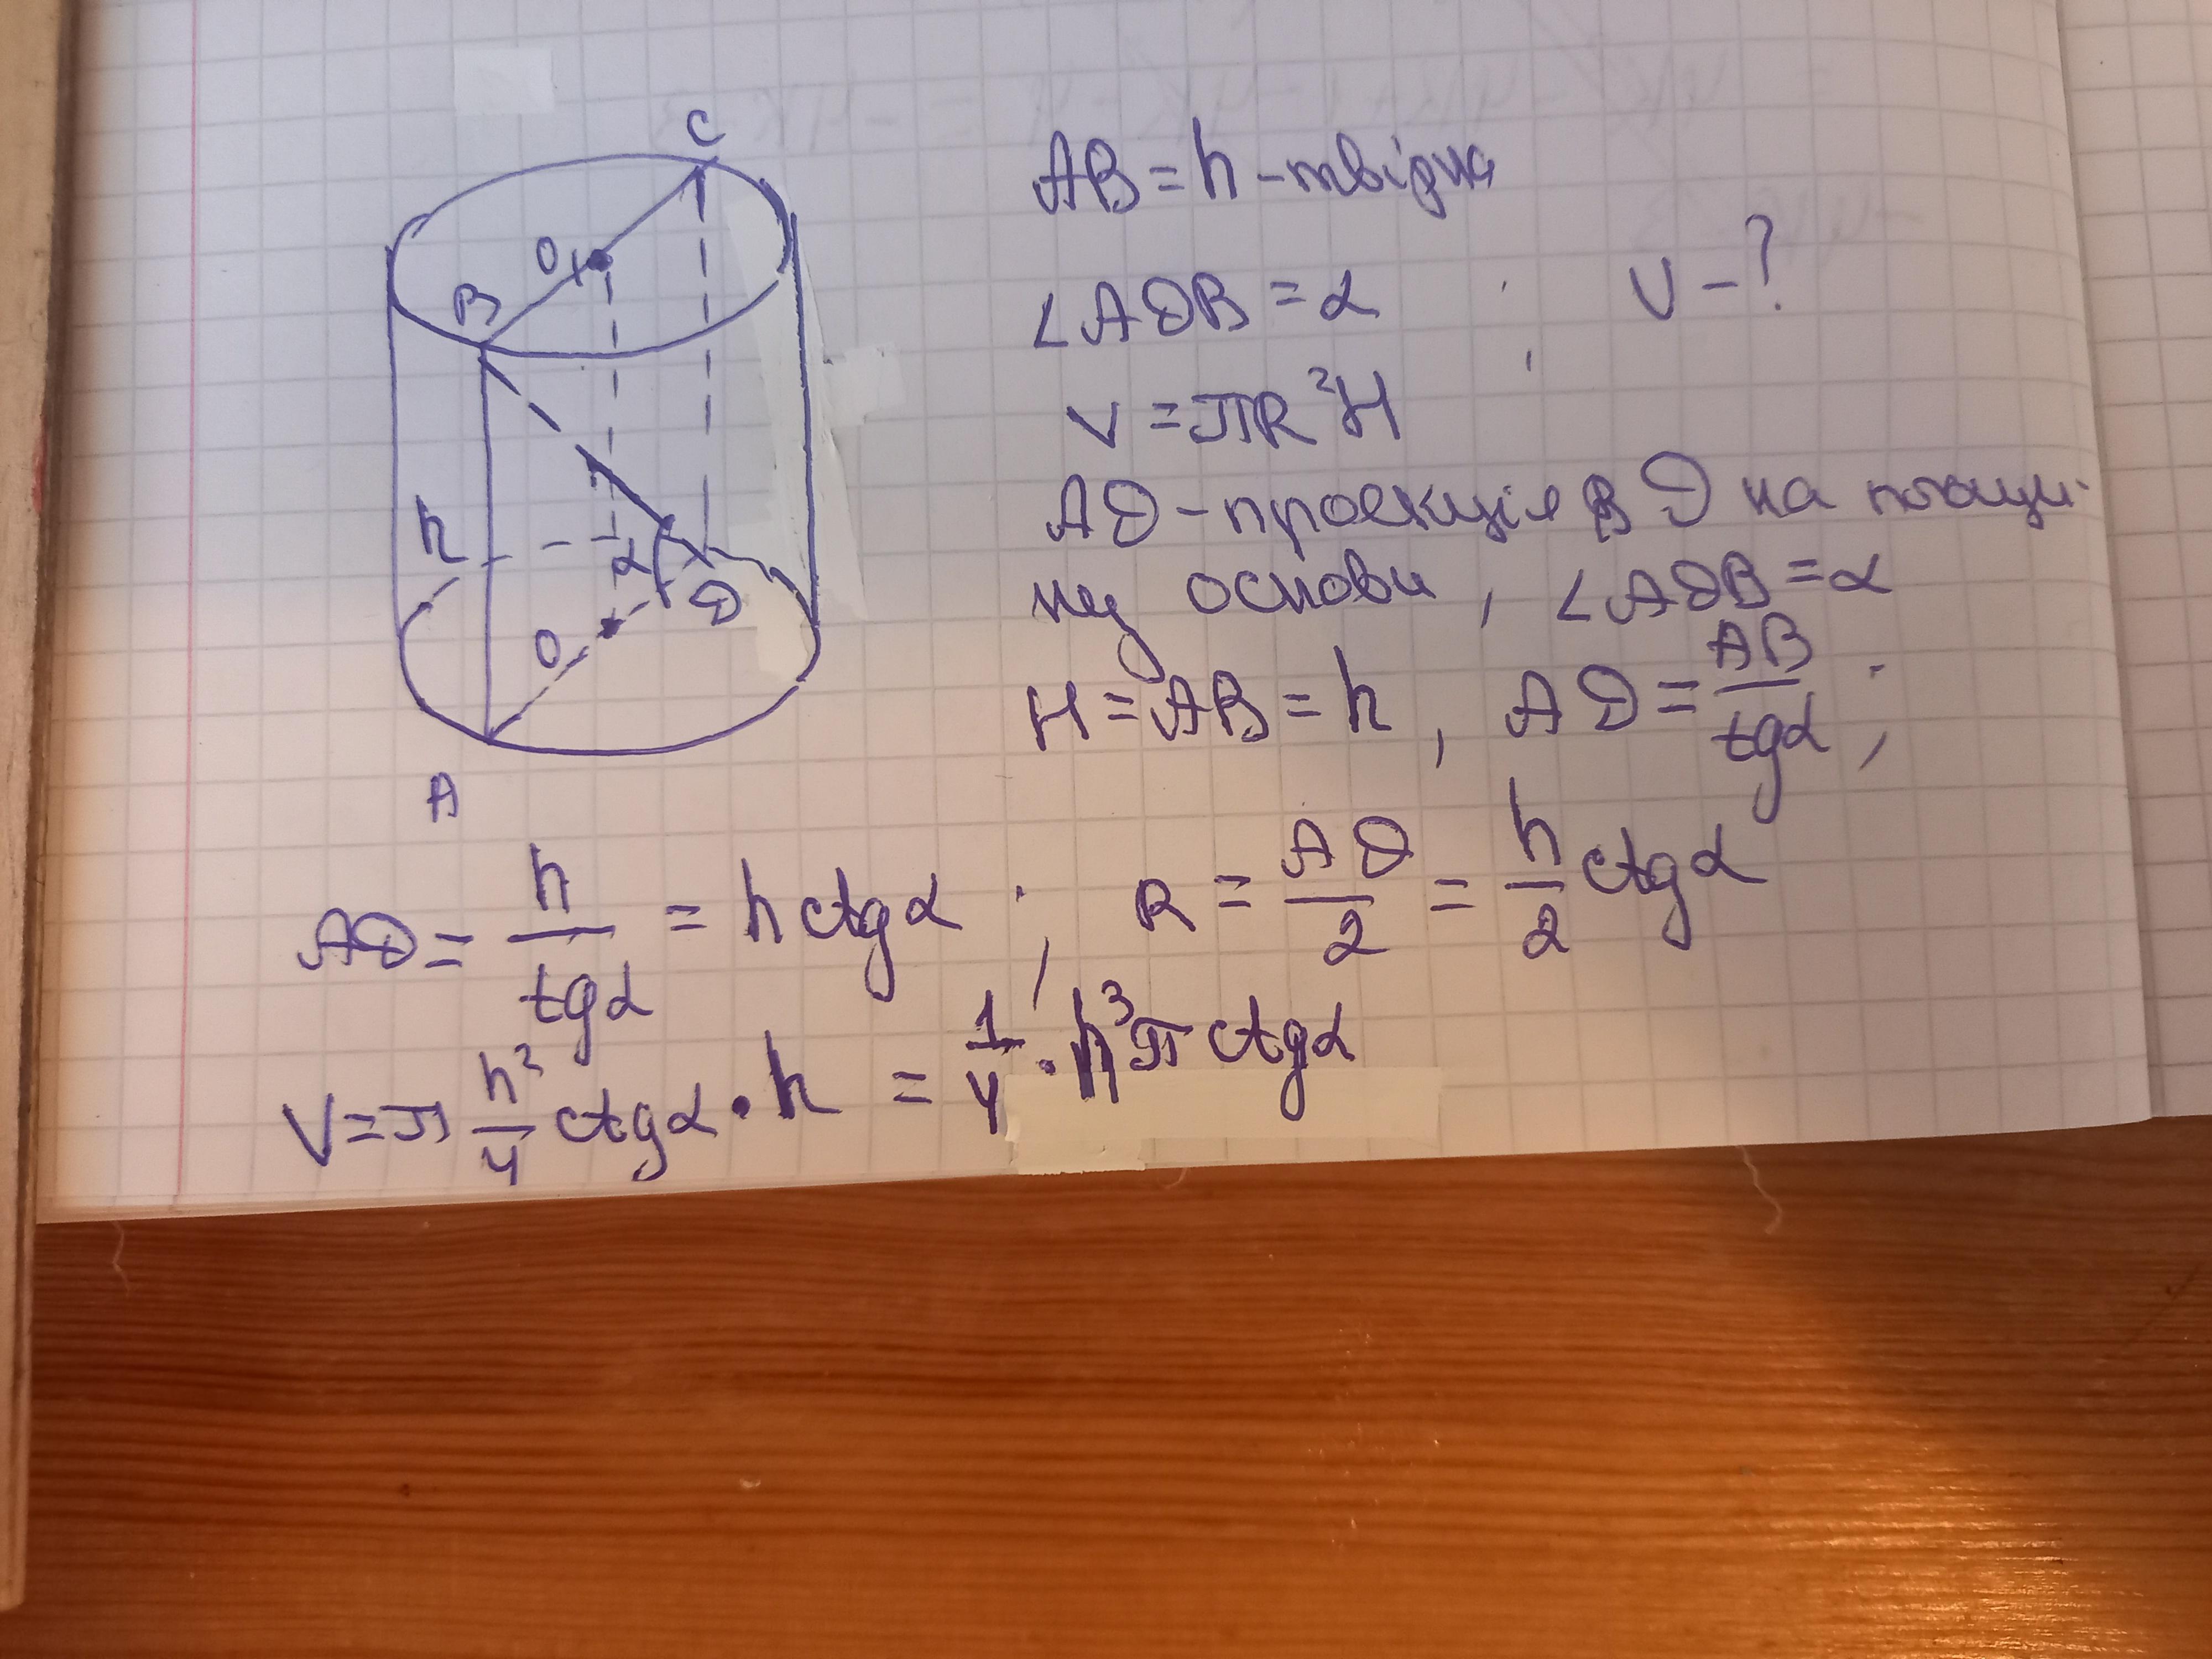 C
O₁
B
h
α
D
O
A
AB = h - твірна
∠ADB = α ; V - ?
V = πR²H
AD - проекція BD на площи-
ну основи, ∠ADB = α
H = AB = h, AD = AB/tgα ;
AD = h/tgα = h ctgα ; R = AD/2 = h/2 ctgα
V = π h²/4 ctgα · h = 1/4 · h³π ctgα